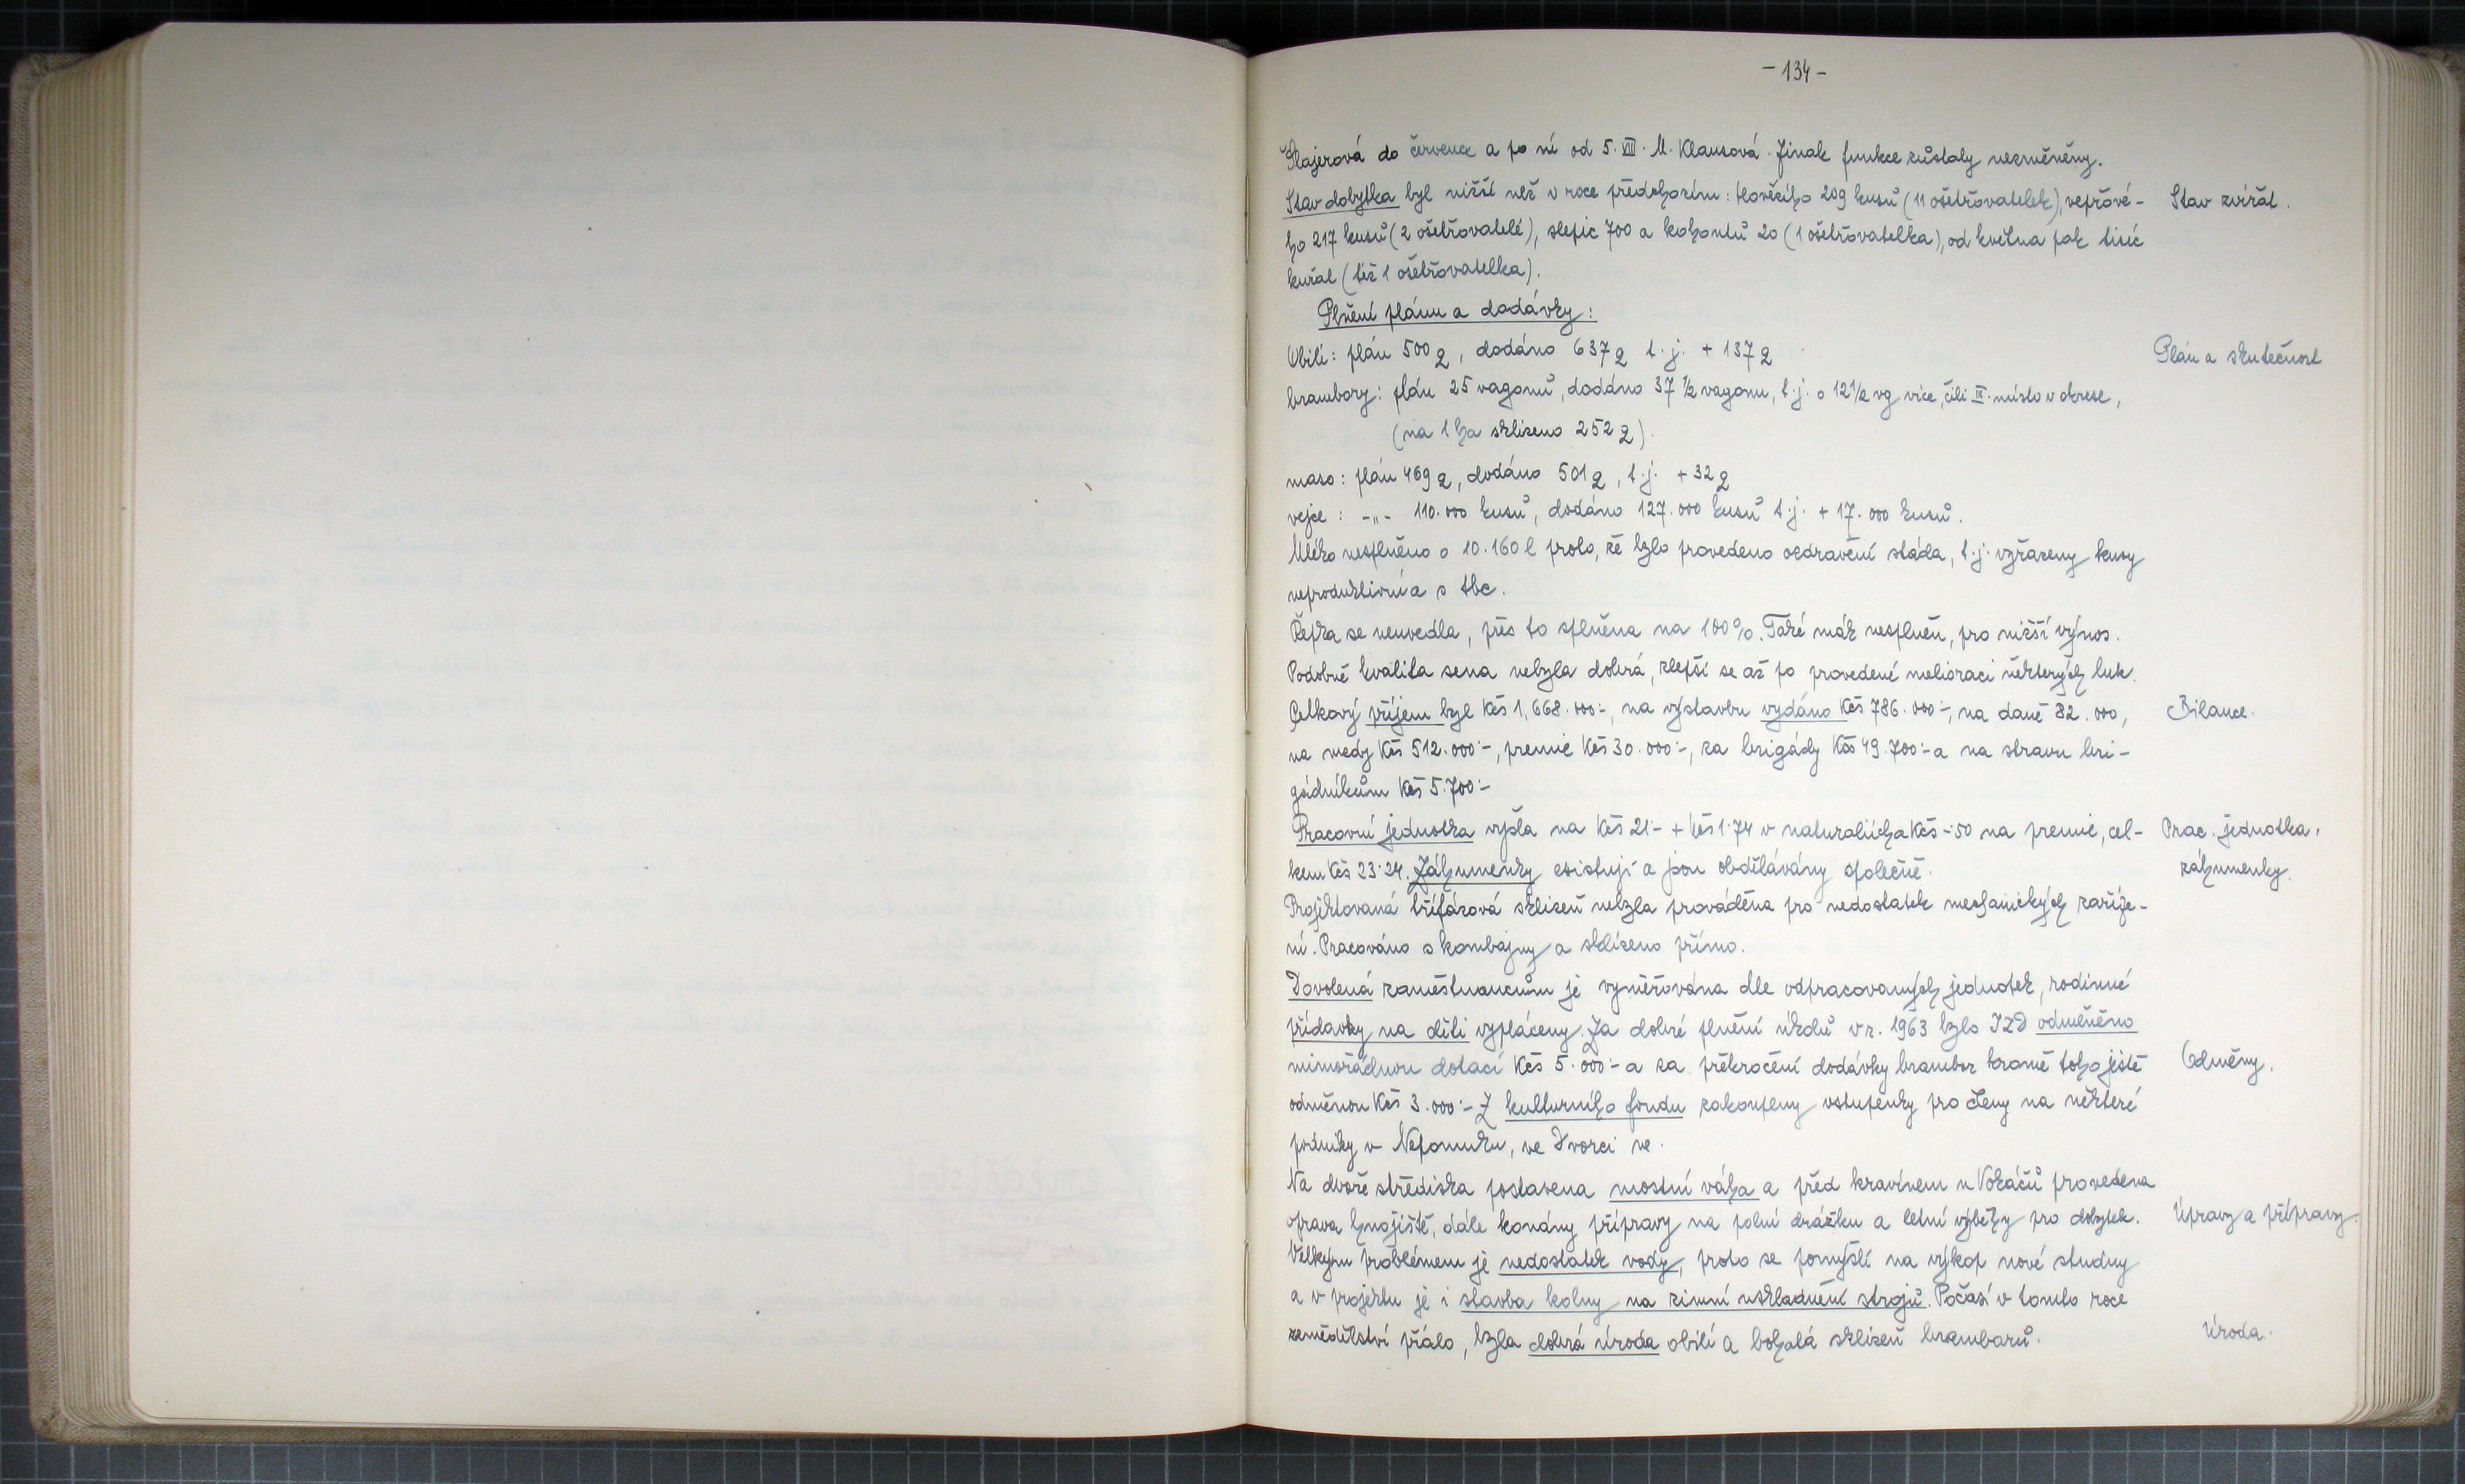 - 134 -
Šlajerová do července a po ní od 5. VIII. M. Klausová. Jinak funkce zůstaly nezměněny.
Stav dobytka byl nižší než v roce předchozím: hovězího 209 kusů (11 ošetřovatelek), vepřové-
Stav zvířat.
ho 217 kusů (2 ošetřovatelé), slepic 700 a kohoutů 20 (1 ošetřovatelka), od května pak tisíc
kuřat (též 1 ošetřovatelka).
Plnění plánu a dodávky:
Obilí: plán 500 q, dodáno 637 q t. j. + 137 q
Plán a skutečnost
brambory: plán 25 vagonů, dodáno 37 1/2 vagonu, t. j. o 12 1/2 vg více, čili II. místo v okrese,
(na 1 ha sklizeno 252 q).
maso: plán 469 q, dodáno 501 q, t. j. + 32 q
vejce: -„- 110.000 kusů, dodáno 127.000 kusů t. j. + 17.000 kusů.
Mléko nesplněno o 10.160 l proto, že bylo provedeno ozdravění stáda, t. j. vyřazeny kusy
neproduktivní a s tbc.
Řepka se neuvedla, přes to splněna na 100%. Také mák nesplněn, pro nižší výnos.
Podobně kvalita sena nebyla dobrá, zlepší se až po provedené melioraci některých luk.
Celkový příjem byl Kčs 1,668.000:-, na výstavbu vydáno Kčs 786.000:-, na daně 82.000,
Bilance.
na mzdy Kčs 512.000:-, premie Kčs 30.000:-, za brigády Kčs 49.700:- a na stravu bri-
gádníkům Kčs 5.700:-
Pracovní jednotka vyšla na Kčs 21:- + Kčs 1.74 v naturaliích a Kčs -.50 na premie, cel-
Prac. jednotka,
kem Kčs 23.24. Záhumenky existují a jsou obdělávány společně.
záhumenky.
Projektovaná třífázová sklizeň nebyla prováděna pro nedostatek mechanických zaříze-
ní. Pracováno s kombajny a sklízeno přímo.
Dovolená zaměstnancům je vyměřována dle odpracovaných jednotek, rodinné
přídavky na děti vypláceny. Za dobré plnění úkolů v r. 1963 bylo JZD odměněno
mimořádnou dotací Kčs 5.000:- a za překročení dodávky brambor kromě toho ještě
Odměny.
odměnou Kčs 3.000:- Z kulturního fondu zakoupeny vstupenky pro členy na některé
podniky v Nepomuku, ve Dvorci ve.
Na dvoře střediska postavena mostní váha a před kravínem u Vokáčů provedena
oprava hnojiště, dále konány přípravy na polní drážku a letní výběhy pro dobytek.
Úpravy a přípravy.
Velkým problémem je nedostatek vody, proto se pomýšlí na výkop nové studny
a v projektu je i stavba kolny na zimní uskladnění strojů. Počasí v tomto roce
zemědělství přálo, byla dobrá úroda obilí a bohatá sklizeň bramborů.
Úroda.